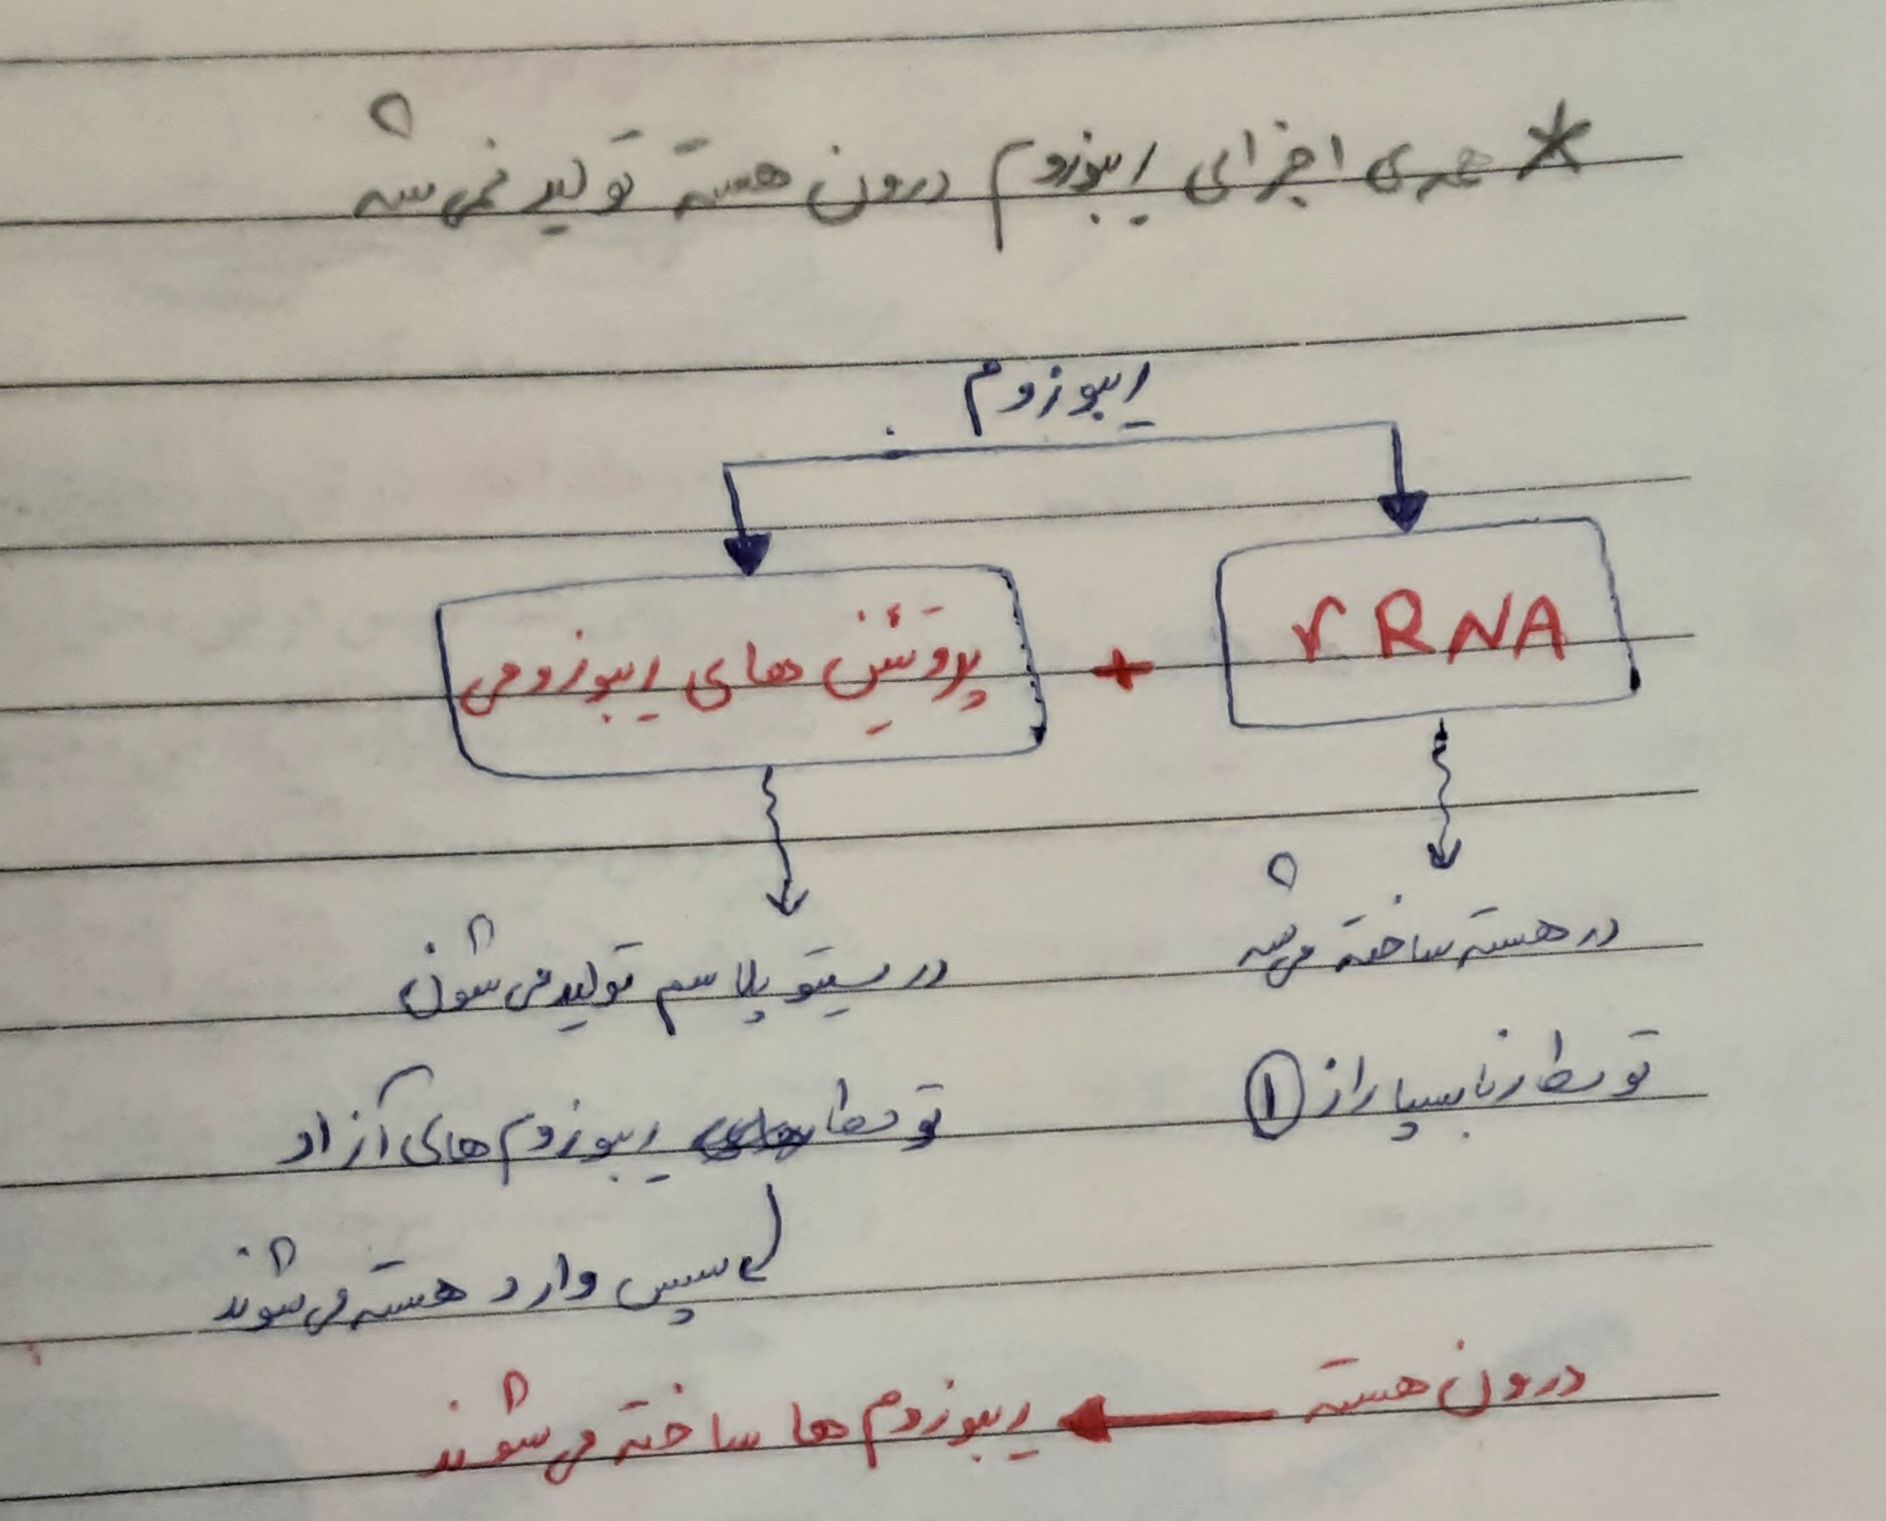 * همه‌ی اجزای ریبوزوم درون هسته تولید نمی‌شه
ریبوزوم
rRNA + پروتئین های ریبوزومی
در هسته ساخته می‌شه
توسط رنابسپاراز ①
در سیتوپلاسم تولید می‌شون
توسط ریبوزوم های آزاد
سپس وارد هسته می‌شوند
درون هسته ← ریبوزوم ها ساخته می‌شوند